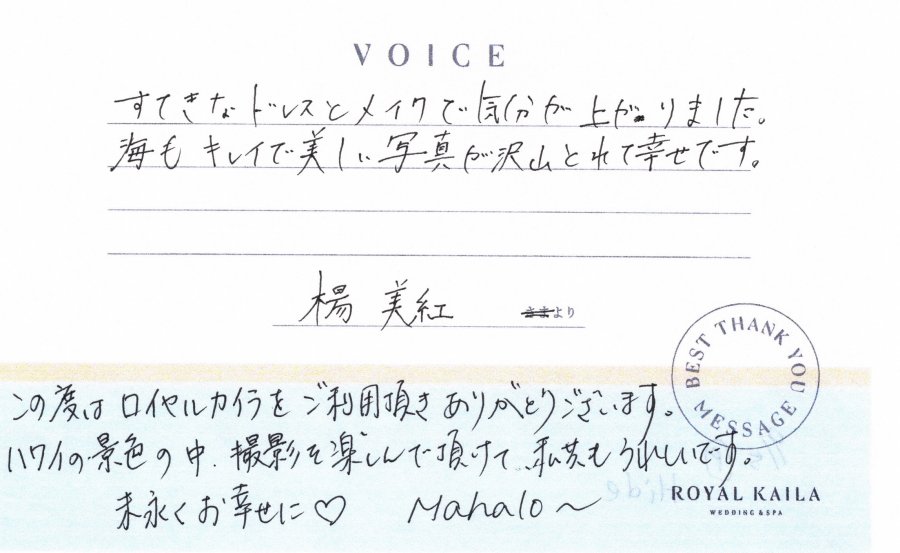 VOICE
すてきなドレスとメイクで気分が上がりました。
海もキレイで美しい写真が沢山とれて幸せです。
楊 美紅 さまより
BEST THANK YOU MESSAGE
この度はロイヤルカイラをご利用頂きありがとうございます。
ハワイの景色の中、撮影を楽しんで頂けて、私共もうれしいです。
末永くお幸せに♡ Mahalo～
ROYAL KAILA
WEDDING & SPA